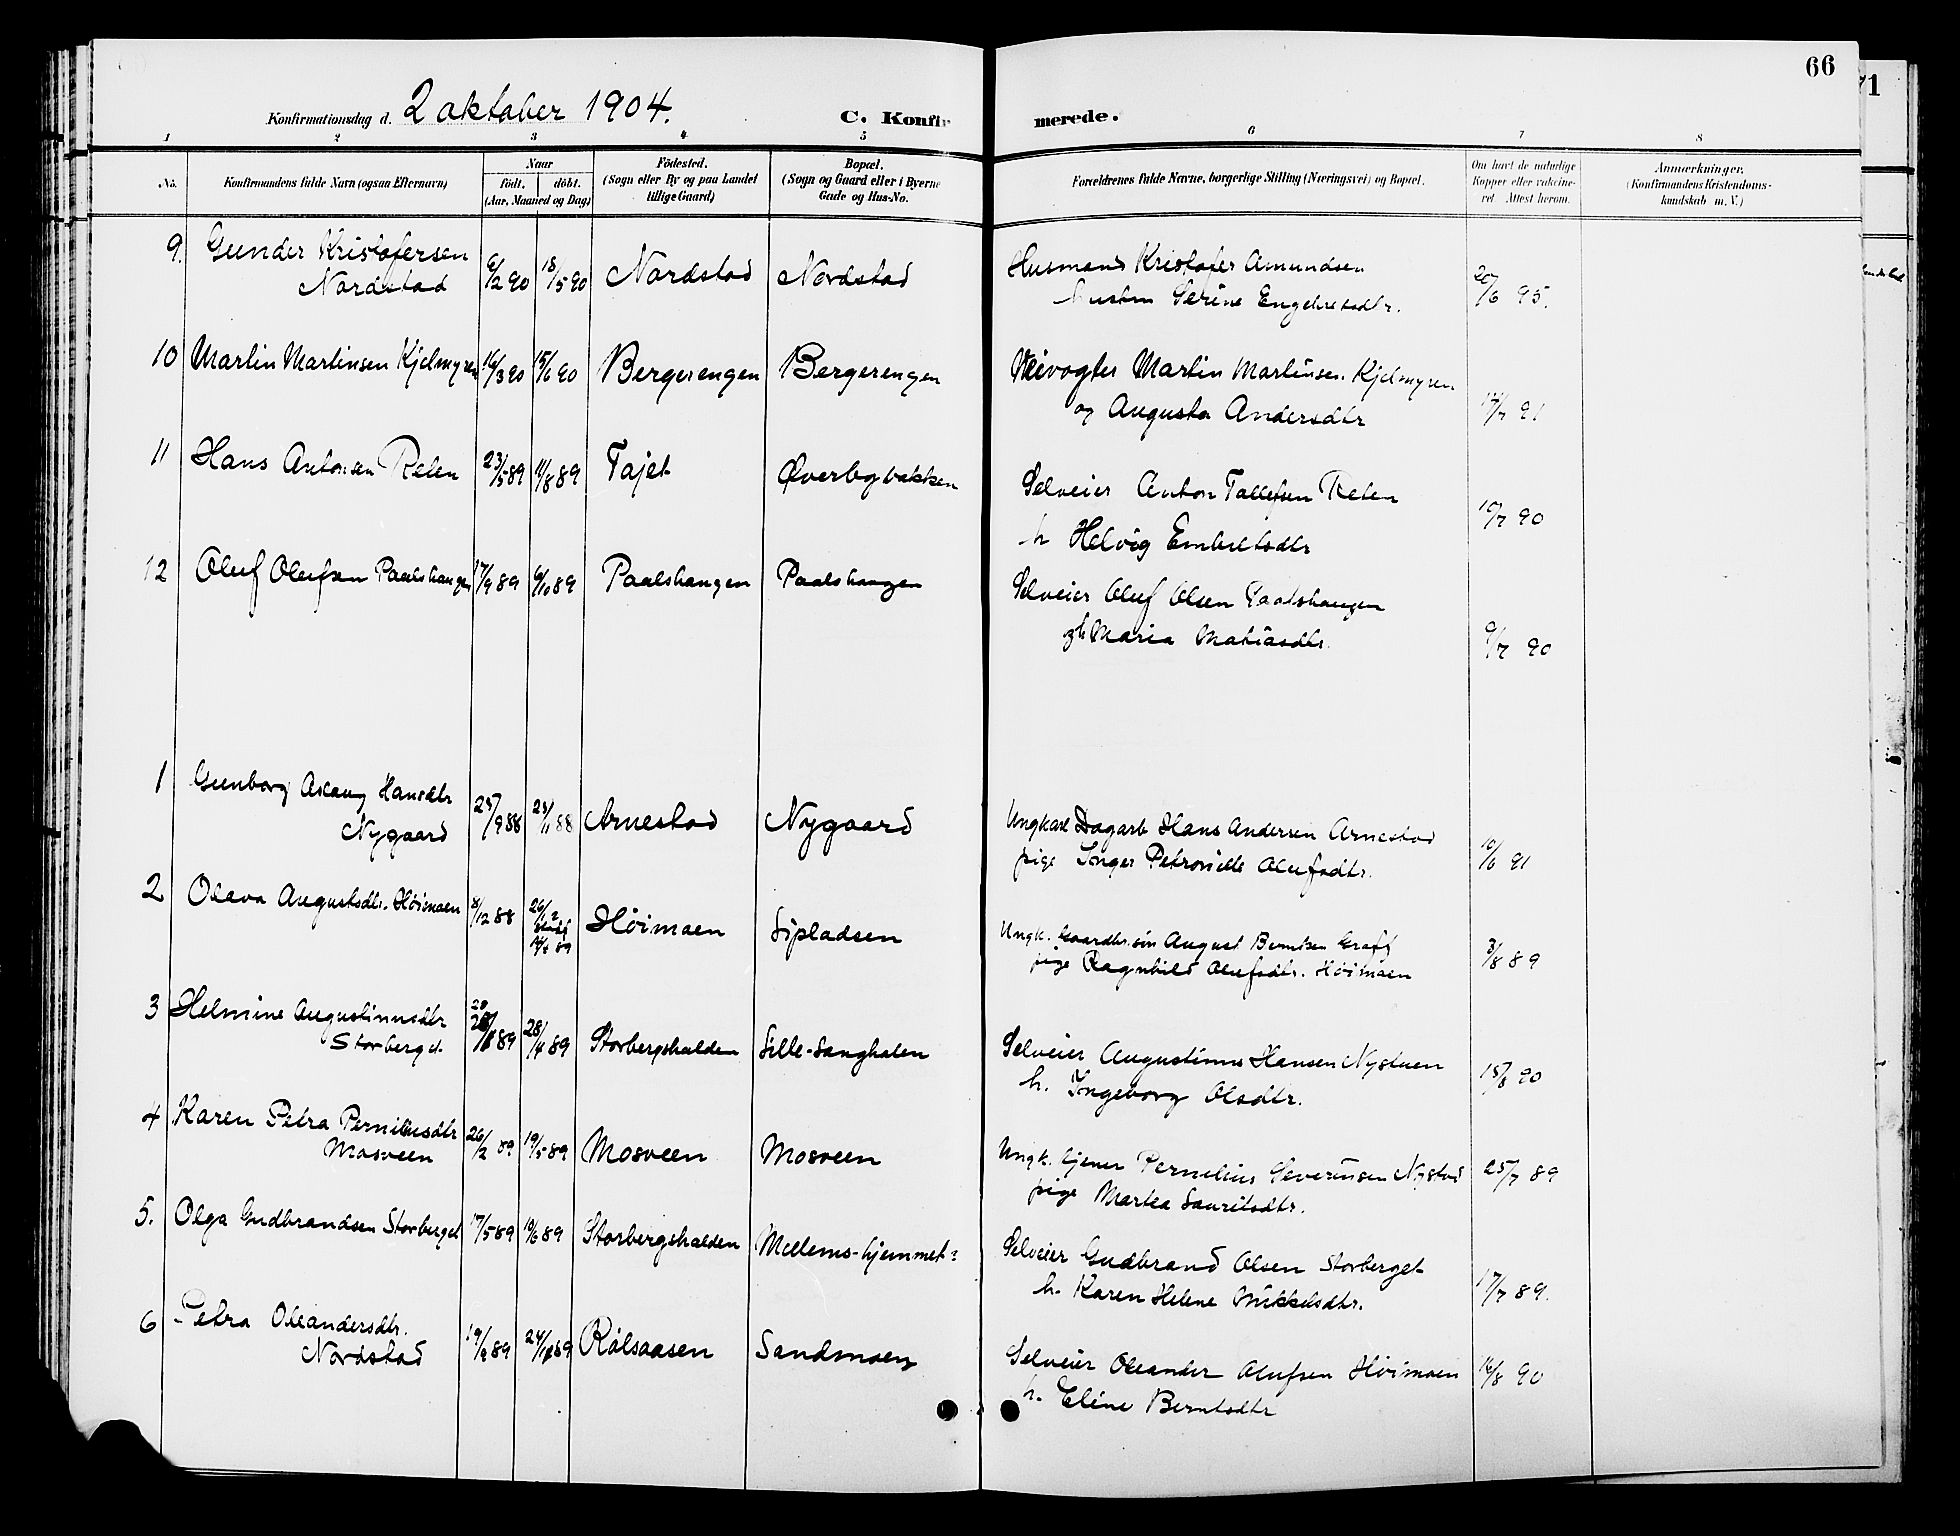 66
71
Konfirmationsdag d. 2 oktober 1904.
C. Konfirmerede.
1 2 3 4 5 6 7 8
No.
Konfirmandens fulde Navn (ogsaa Efternavn)
Naar
født. døbt.
(Aar, Maaned og Dag)
Födested.
(Sogn eller By og paa Landet
tillige Gaard)
Bopæl.
(Sogn og Gaard eller i Byerne
Gade og Hus-No.
Forældrenes fulde Navne, borgerlige Stilling (Næringsvei) og Bopæl.
Om havt de naturlige
Kopper eller vakcine-
ret. Attest herom.
Anmærkninger.
(Konfirmandens Kristendoms-
kundskab m. V.)
9. Gunder Kristofersen 6/2 90 18/5 90 Nordstad Nordstad Husmand Kristofer Amundsen 20/6 95.
Nordstad hustru Serine Engebretsdtr.
10 Martin Martinsen Kjelmyren 16/3 90 15/6 90 Bergerengen Bergerengen Veivogter Martin Martinsen Kjelmyren 14/7 91
og Augusta Andersdtr
11 Hans Antonsen Reten 23/5 89 11/8 89 Tajet Øverbybakken Selveier Anton Tollefsen Reten 10/7 90
h Helvig Embretsdtr
12 Oluf Olufsen Paalshaugen 17/9 89 6/10 89 Paalshaugen Paalshaugen Selveier Oluf Olsen Paalshaugen 9/7 90
Maria Matiasdtr.
1 Gunborg Aslaug Hansdtr 29/9 88 23/11 88 Arnestad Nygaard Ungkarl Dagarb Hans Andersen Arnestad 10/6 91
Nygaard pige Inger Petronille Olufsdtr.
2 Oleva Augustsdtr. Høimoen 8/12 88 26/12 Høimoen Sipladsen Ungk. Gaardbr.søn August Berntsen Graff 3/8 89
pige Ragnhild Olufsdtr. Høimoen
3 Helmine Augustinusdtr 89 28/4 89 Storbergshalden Lille-Sanghalen Selveier Augustinus Hansen Nystuen 15/8 90
Storberget h. Ingeborg Olsdtr.
4 Karen Petra Perniliusdtr 26/2 89 19/5 89 Mosveen Mosveen Ungk. tjener Pernelius Severinsen Nystad 25/7 89
Mosveen pige Martea Lauritsdtr.
5. Olga Gudbrandsen Storberget 17/5 89 10/6 89 Storbergshalden Mellems-hjemmet Selveier Gudbrand Olsen Storberget 17/7 89.
h. Karen Helene Mikkelsdtr.
6 Petra Oleandersdtr. 19/9 89 24/11 89 Rølsaasen Sandmoen Selveier Oleander Olufsen Høimoen 16/8 90
Nordstad h. Eline Berntsdtr